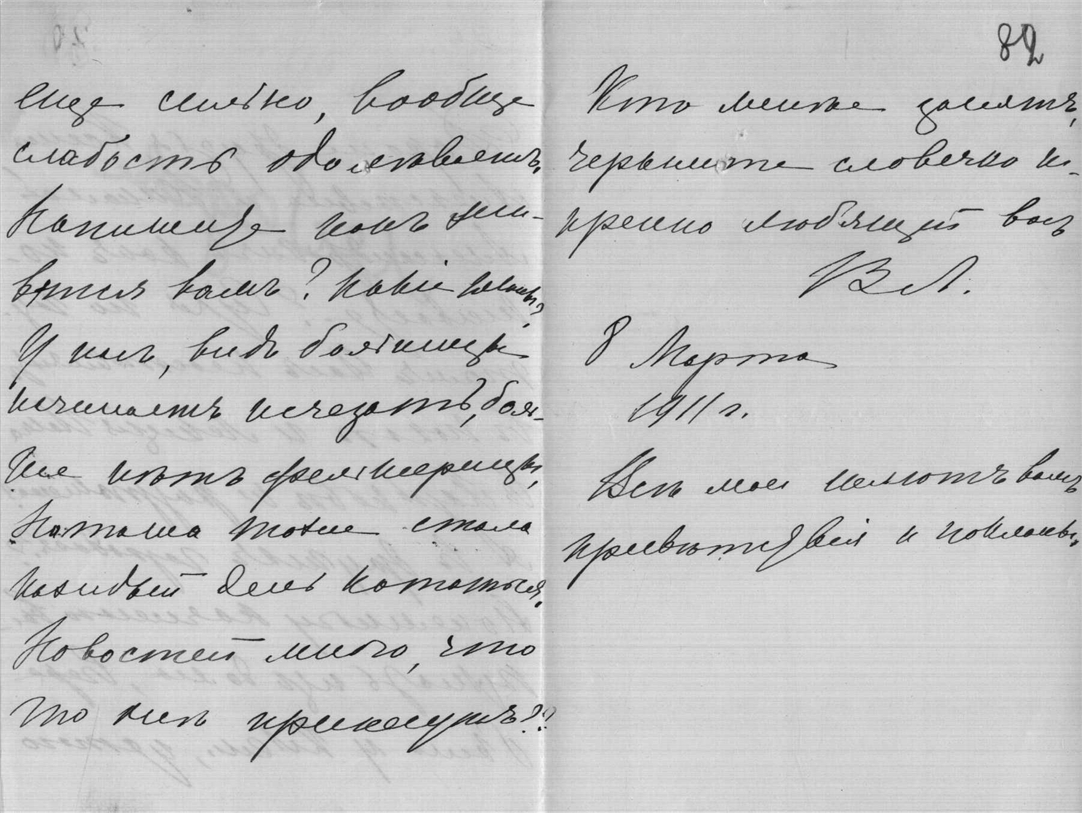 еще сильно, вообще
слабость одолеваетъ.
Напишите какъ жи-
вется вамъ? Какіе планы?
У насъ, видъ больницы
начинаетъ исчезать, боль-
ше нѣтъ фельдшерицы,
Наташа тоже стала
каждый день кататься.
Новостей много, что
то они принесутъ??
82
Кто менѣе занятъ,
черкните словечко ис-
кренно любящій васъ
В Л.
8 Марта
1911 г.
Всѣ мои шлютъ вамъ
привѣтствія и поклоны.